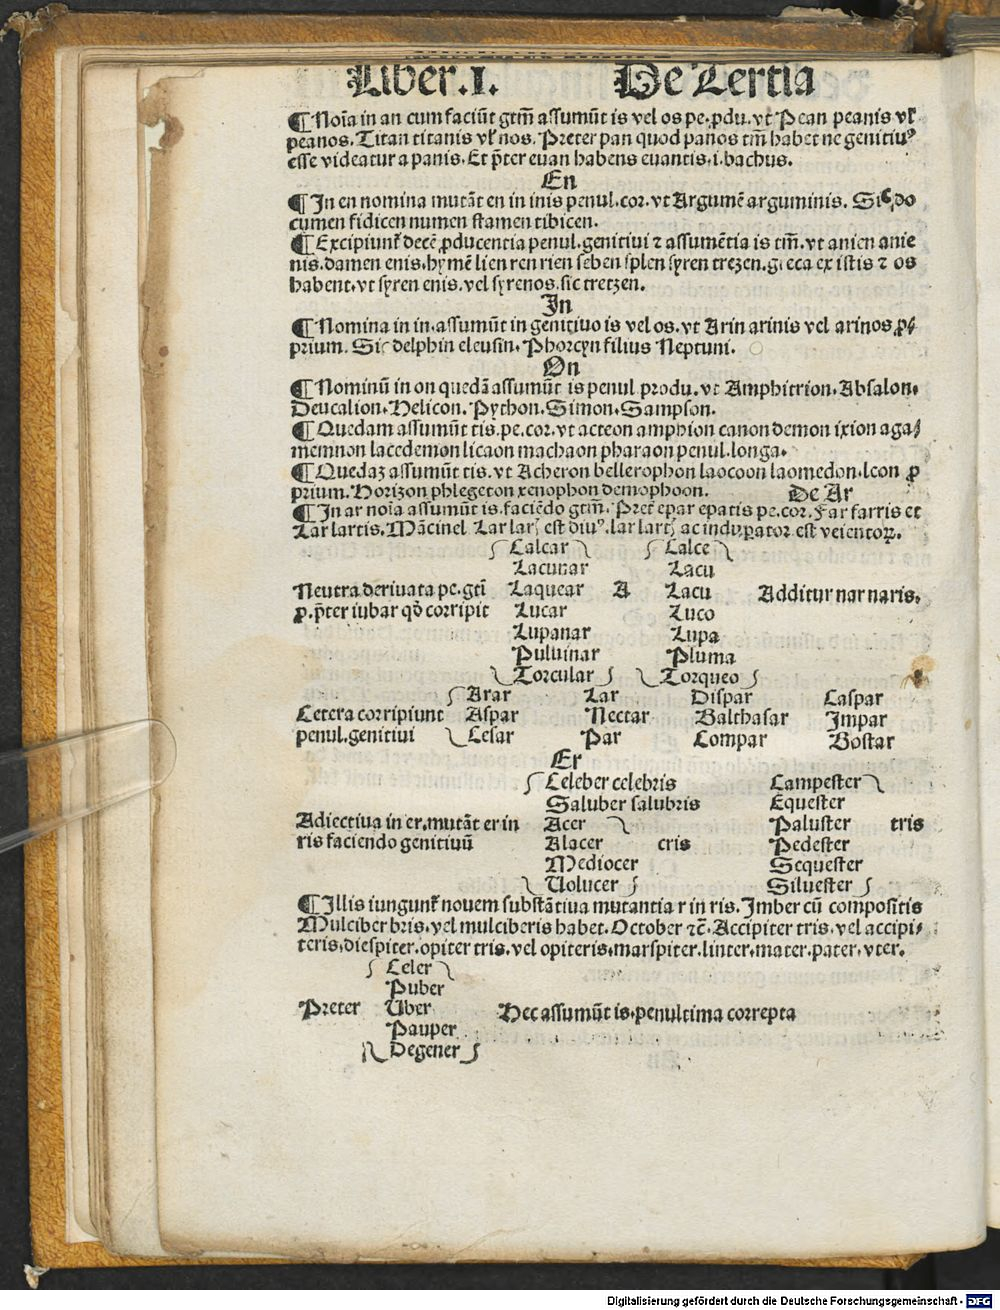 Liber.I. De Tertia
¶ Noīa in an cum faciūt gtm̄ assumūt is vel os pe.ꝓdu.vt Pean peanis vł
peanos. Titan titanis vł nos. Preter pan quod panos tm̄ habet ne genitiuꝰ
esse videatur a panis. Et p̄ter euan habens euantis.i.bachus.
En
¶ In en nomina mutāt en in inis penul.cor.vt Argumē arguminis. Sic do
cumen fidicen numen stamen tibicen.
¶ Excipiunt᷑ decē ꝓducentia penul.genitiui ⁊ assumētia is tm̄.vt anien anie
nis.damen enis.hymē lien ren rien seben splen syren trezen.greca ex istis ⁊ os
habent.vt syren enis.vel syrenos.sic tretzen.
In
¶ Nomina in in.assumūt in genitiuo is vel os.vt Arin arinis vel arinos ꝓ⸗
prium. Sic delphin eleusin. Phorcyn filius Neptuni.
On
¶ Nominū in on quedā assumūt is penul produ.vt Amphitrion.Absalon.
Deucalion.Helicon.Python.Simon.Sampson.
¶ Quedam assumūt tis.pe.cor.vt acteon amphion canon demon ixion aga⸗
memnon lacedemon licaon machaon pharaon penul.longa.
¶ Quedaz assumūt tis.vt Acheron bellerophon laocoon laomedon.leon ꝓ
prium.Horizon phlegeton xenophon demophoon. De Ar
¶ In ar noīa assumūt is.faciēdo gtm̄. Preter epar epatis pe.cor.Far farris et
Lar lartis.Mācinel Lar larꝭ est diuꝰ.lar lartꝭ ac induꝑator est veientoꝝ.
Calcar Calce
Lacunar Lacu
Neutra deriuata pe.gtī Laquear A Lacu Additur nar naris.
ꝓ.p̄ter iubar qd̄ corripit Lucar Luco
Lupanar Lupa
Puluinar Pluma
Torcular Torqueo
Arar Lar Dispar Caspar
Cetera corripiunt Aspar Nectar Balthasar Impar
penul.genitiui Cesar Par Compar Bostar
Er
Celeber celebris Campester
Saluber salubris Equester
Adiectiua in er.mutāt er in Acer Paluster tris
ris faciendo genitiuū Alacer cris Pedester
Mediocer Sequester
Uolucer Siluester
¶ Illis iungunt᷑ nouem substātiua mutantia r in ris. Imber cū compositis
Mulciber bris.vel mulciberis habet.October ⁊c̄.Accipiter tris.vel accipi⸗
teris.diespiter.opiter tris.vel opiteris.marspiter.linter.mater.pater.vter.
Celer
Puber
Preter Uber Hec assumūt is.penultima correpta
Pauper
Degener
Digitalisierung gefördert durch die Deutsche Forschungsgemeinschaft - DFG